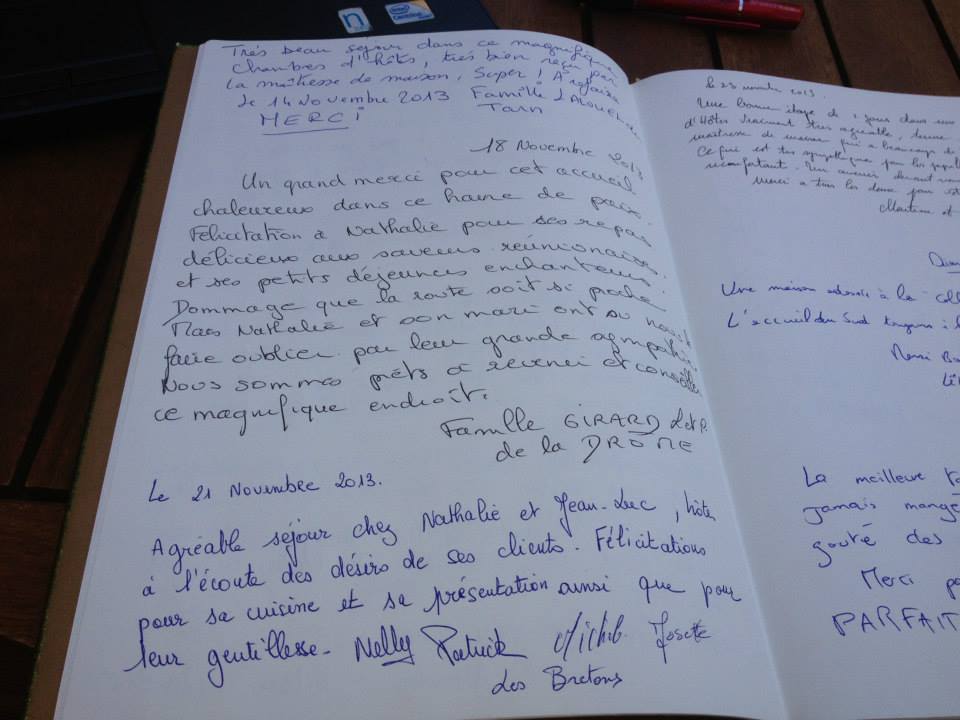 Très beau séjour dans ce magnifique
chambres d'hôts, très bien reçu par
la maîtresse de maison, Super! A refaire
Le 14 Novembre 2013 Famille
MERCi Tarn
18 Novembre 2013
Un grand merci pour cet accueil
chaleureux dans ce havre de paix.
Félicitation à Nathalie pour ses repas
délicieux aux saveurs réunionaises.
et ses petits déjeuners enchanteurs.
Dommage que la route soit si proche
Mais Nathalie et son mari ont su nous
faire oublier par leur grande sympathie
Nous sommes prêts à revenir et conseiller
ce magnifique endroit.
Famille GIRARD L et P.
de la DRÔME
Le 21 Novembre 2013.
Agréable séjour chez Nathalie et Jean-Luc, hôte
à l'écoute des désirs de ses clients. Félicitations
pour sa cuisine et sa présentation ainsi que pour
leur gentillesse - Nelly Patrick Michel Josette
Les Bretons
le 23 2013.
Une bonne étape de 2 jours dans une
d'Hôtes vraiment très agréable, tenue
maîtresse de maison qui a beaucoup de
Ce qui est très sympathique pour les
réconfortant. Un avenir devant vous
Merci à tous les deux pour
Martine et
Une maison adossée à la
L'accueil du Sud toujours à
Merci
La meilleure
jamais mangé
goûté des
Merci
PARFAIT